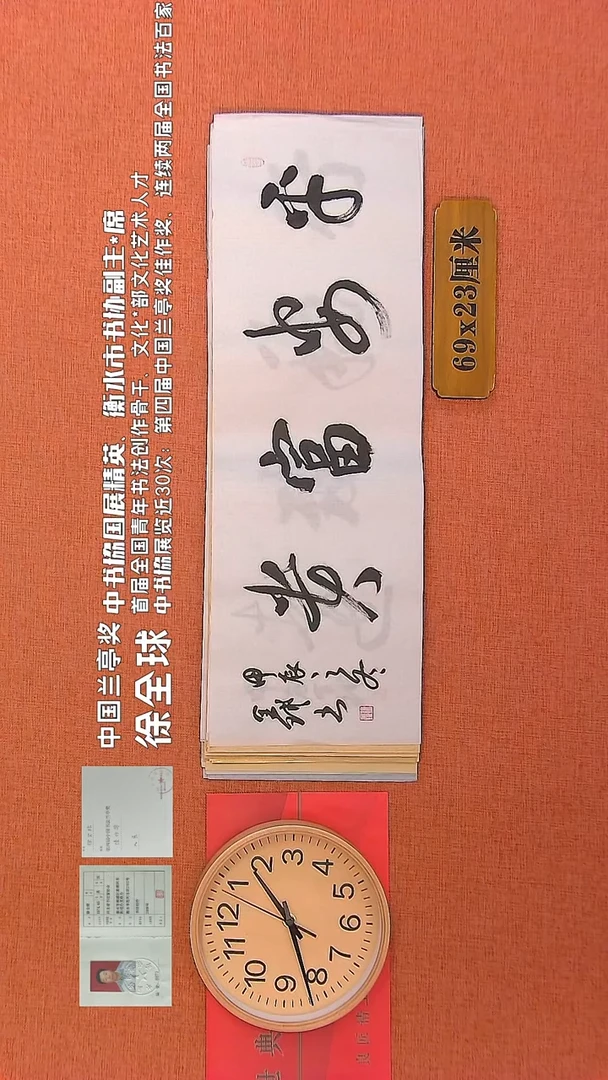 中国兰亭奖 中书協国展精英、衡水市书协副主*席
徐全球 首届全国青年书法创作骨干、文化*部文化艺术人才
中书協展览近30次：第四届中国兰亭奖佳作奖、连续两届全国书法百家
平安富贵
甲辰之冬
全球书
69x23厘米
12 1 2 3 4 5 6 7 8 9 10 11